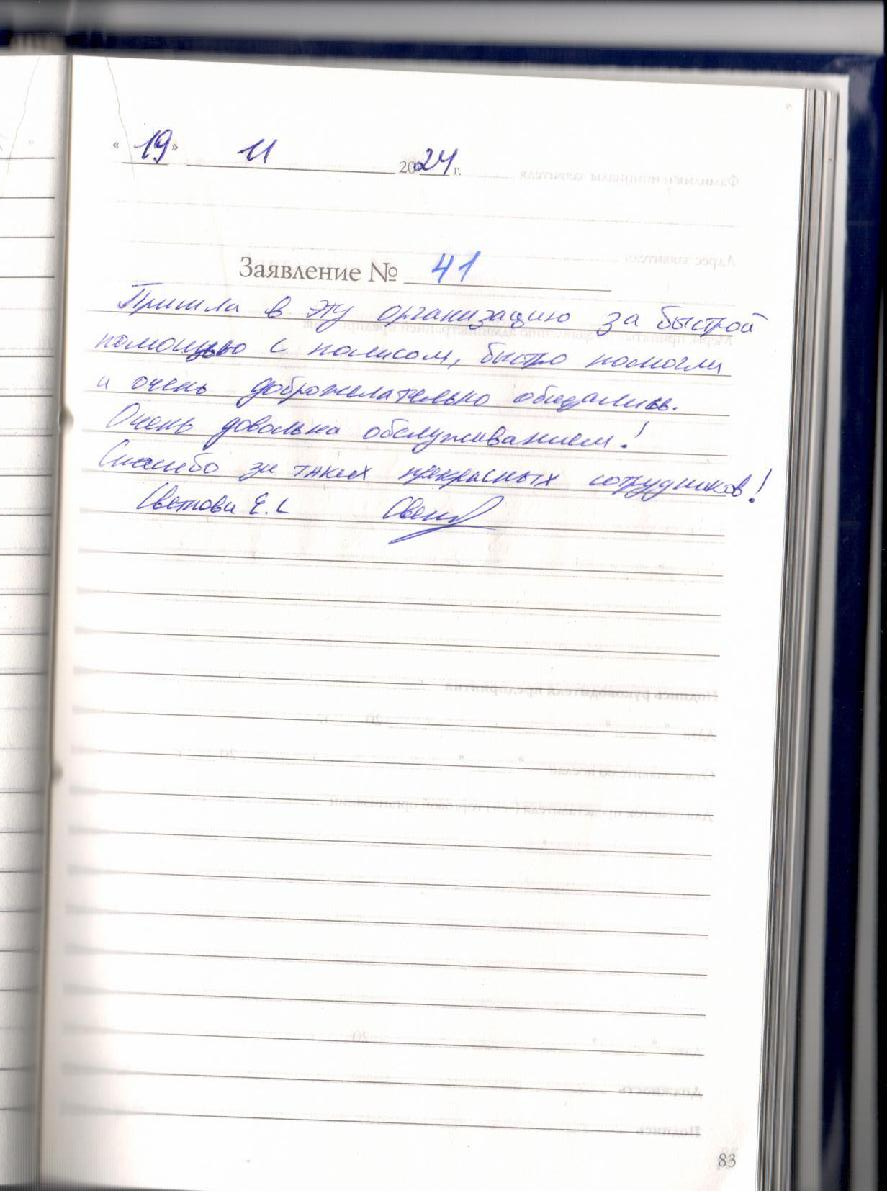 « 19 » 11 2024 г.
Заявление № 41
Пришла в эту организацию за быстрой
помощью с полисом, быстро помогли
и очень доброжелательно общались.
Очень довольна обслуживанием!
Спасибо за таких прекрасных сотрудников!
Светова Е.С
83